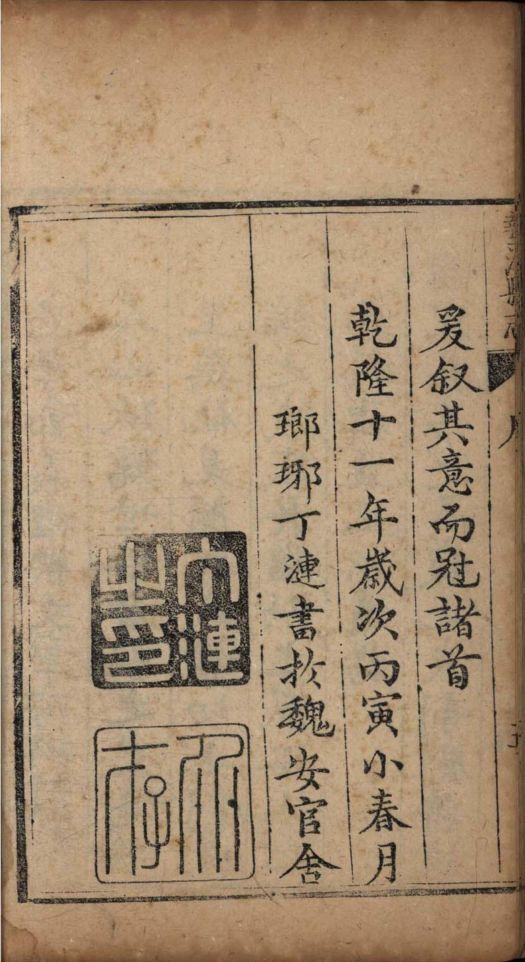 爰叙其意而冠諸首
乾隆十一年歲次丙寅小春月
瑯琊丁漣書於魏安官舍
丁漣之印